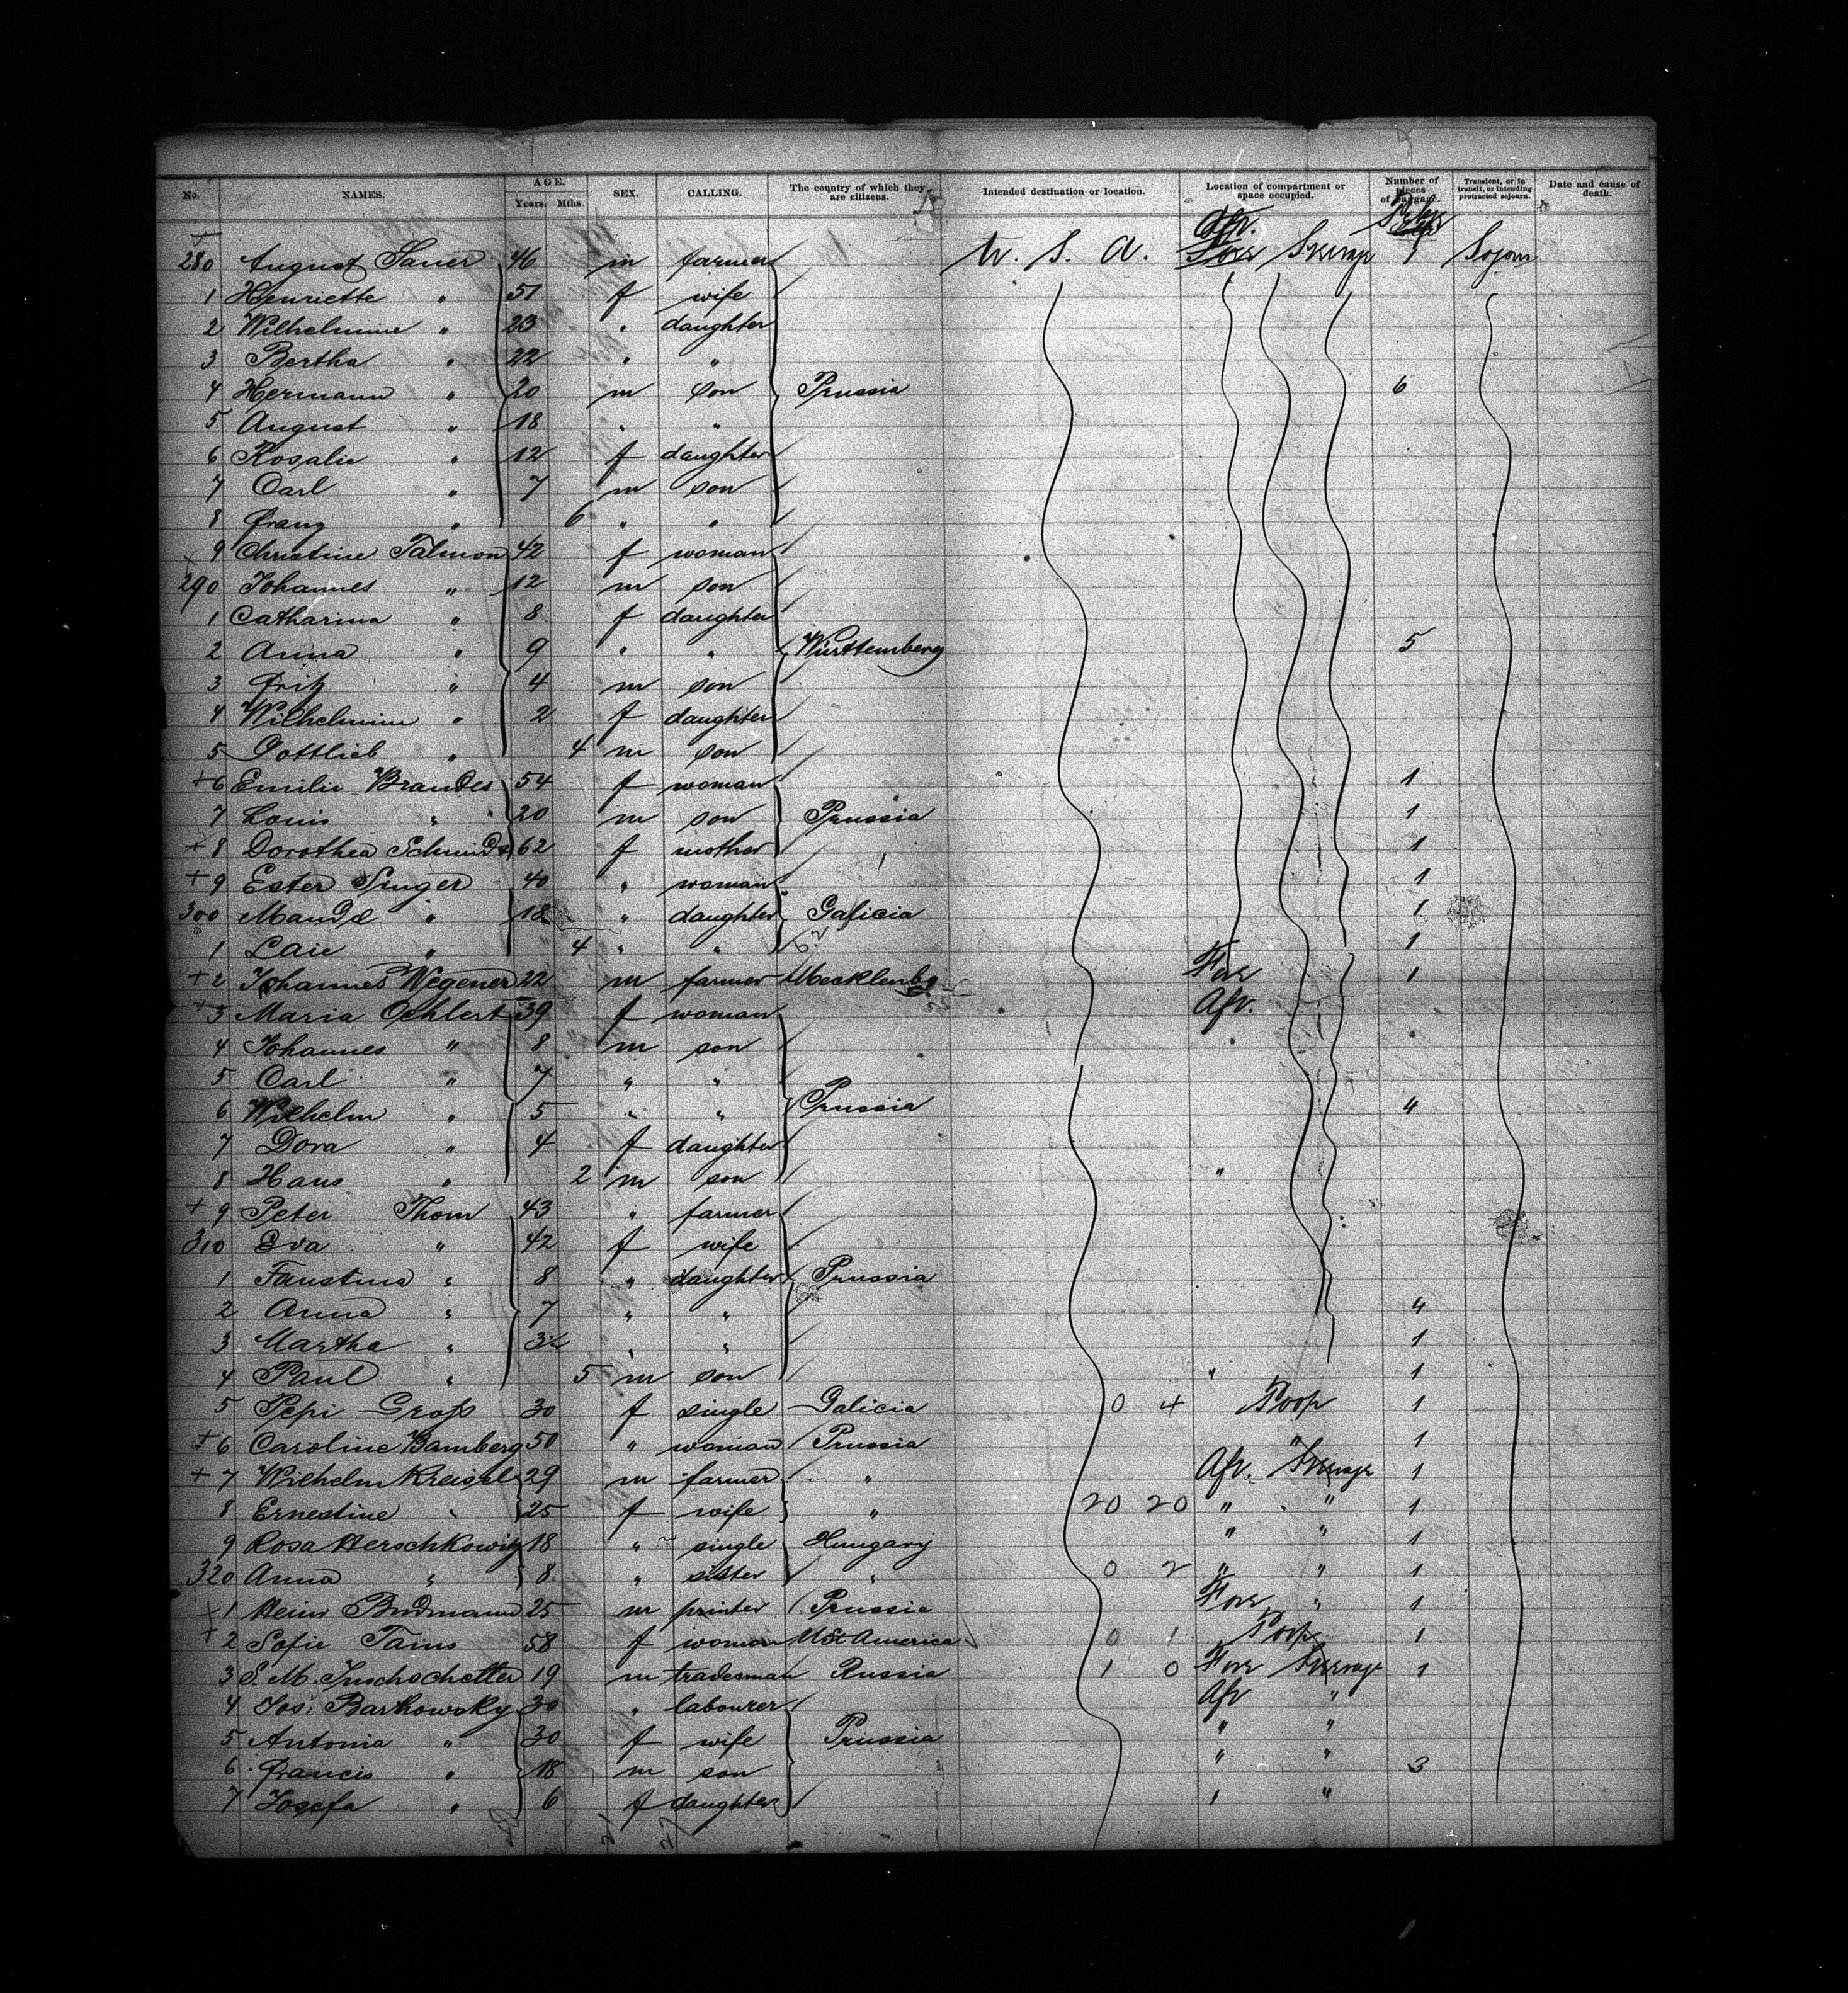 No. NAMES. AGE. Years. Mths. SEX. CALLING. The country of which they are citizens. Intended destination or location. Location of compartment or space occupied. Number of pieces of baggage. Transient, or in transit, or intending protracted sojourn. Date and cause of death.
Aft.
280 August Sauer 46 m farmer U. S. A. Fore Steerage 1 Sojourn
1 Henriette " 51 f wife
2 Wilhelmine " 23 " daughter
3 Bertha " 22 " "
4 Hermann " 20 m son Prussia 6
5 August " 18 " "
6 Rosalie " 12 f daughter
7 Carl " 7 m son
8 Franz " 6 " "
9 Christine Talmon 42 f woman
290 Johannes " 12 m son
1 Catharina " 8 f daughter
2 Anna " 9 " " Württemberg 5
3 Fritz " 4 m son
4 Wilhelmine " 2 f daughter
5 Gottlieb " 4 m son
+6 Emilie Brandes 54 f woman 1
7 Louis " 20 m son Prussia 1
+8 Dorothea 62 f mother 1
+9 Ester Singer 40 " woman 1
300 " 18 " daughter Galicia 1
1 Laie " 4 " " 1
+2 Johannes Wegener 22 m farmer Mecklenbg Fore 1
+3 Maria Oehlert 39 f woman Aft.
4 Johannes " 8 m son
5 Carl " 7 " "
6 Wilhelm " 5 " " Prussia 4
7 Dora " 4 f daughter
8 Hans " 2 m son "
+9 Peter Thom 43 " farmer
310 Eva " 42 f wife
1 Faustina " 8 " daughter Prussia
2 Anna " 7 " " 4
3 Martha " " " 1
4 Paul " 5 m son " 1
5 Pepi Groß 30 f single Galicia 0 4 Poop 1
+6 Caroline Bamberg 50 " woman Prussia " 1
+7 Wilhelm Kreisel 29 m farmer " Aft. Steerage 1
8 Ernestine " 25 f wife " 20 20 " " 1
9 Rosa Herschkowitz 18 " single Hungary " " 1
320 Anna " 8 " sister " 0 2 " " 1
+1 Heinr 25 m printer Prussia Fore " 1
+2 Sofie Tams 58 f woman America 0 1 Poop 1
3 S. M. 19 m tradesman Russia 1 0 Fore Steerage 1
4 Jos: Barkowsky 30 " labourer Aft "
5 Antonia " 30 f wife Prussia " "
6 Francis " 18 m son " " 3
7 Josefa " 6 f daughter " "